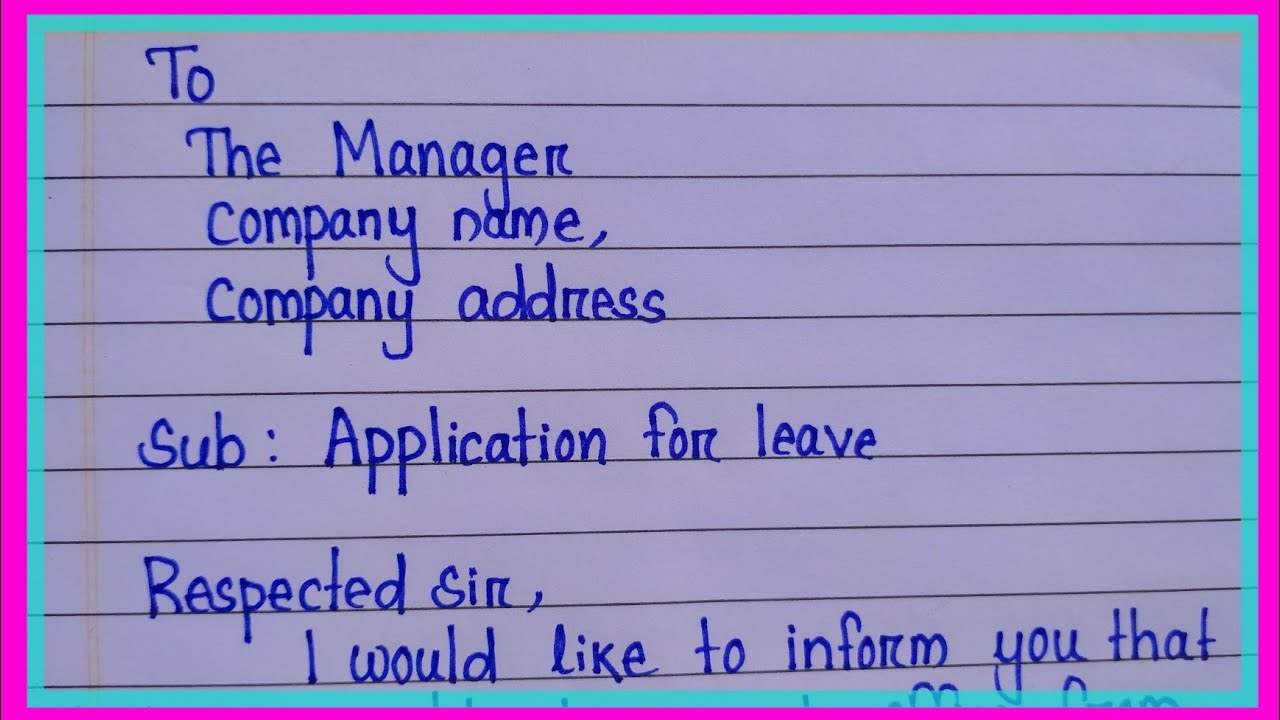 To
The Manager
Company name,
Company address
Sub: Application for leave
Respected sir,
I would like to inform you that